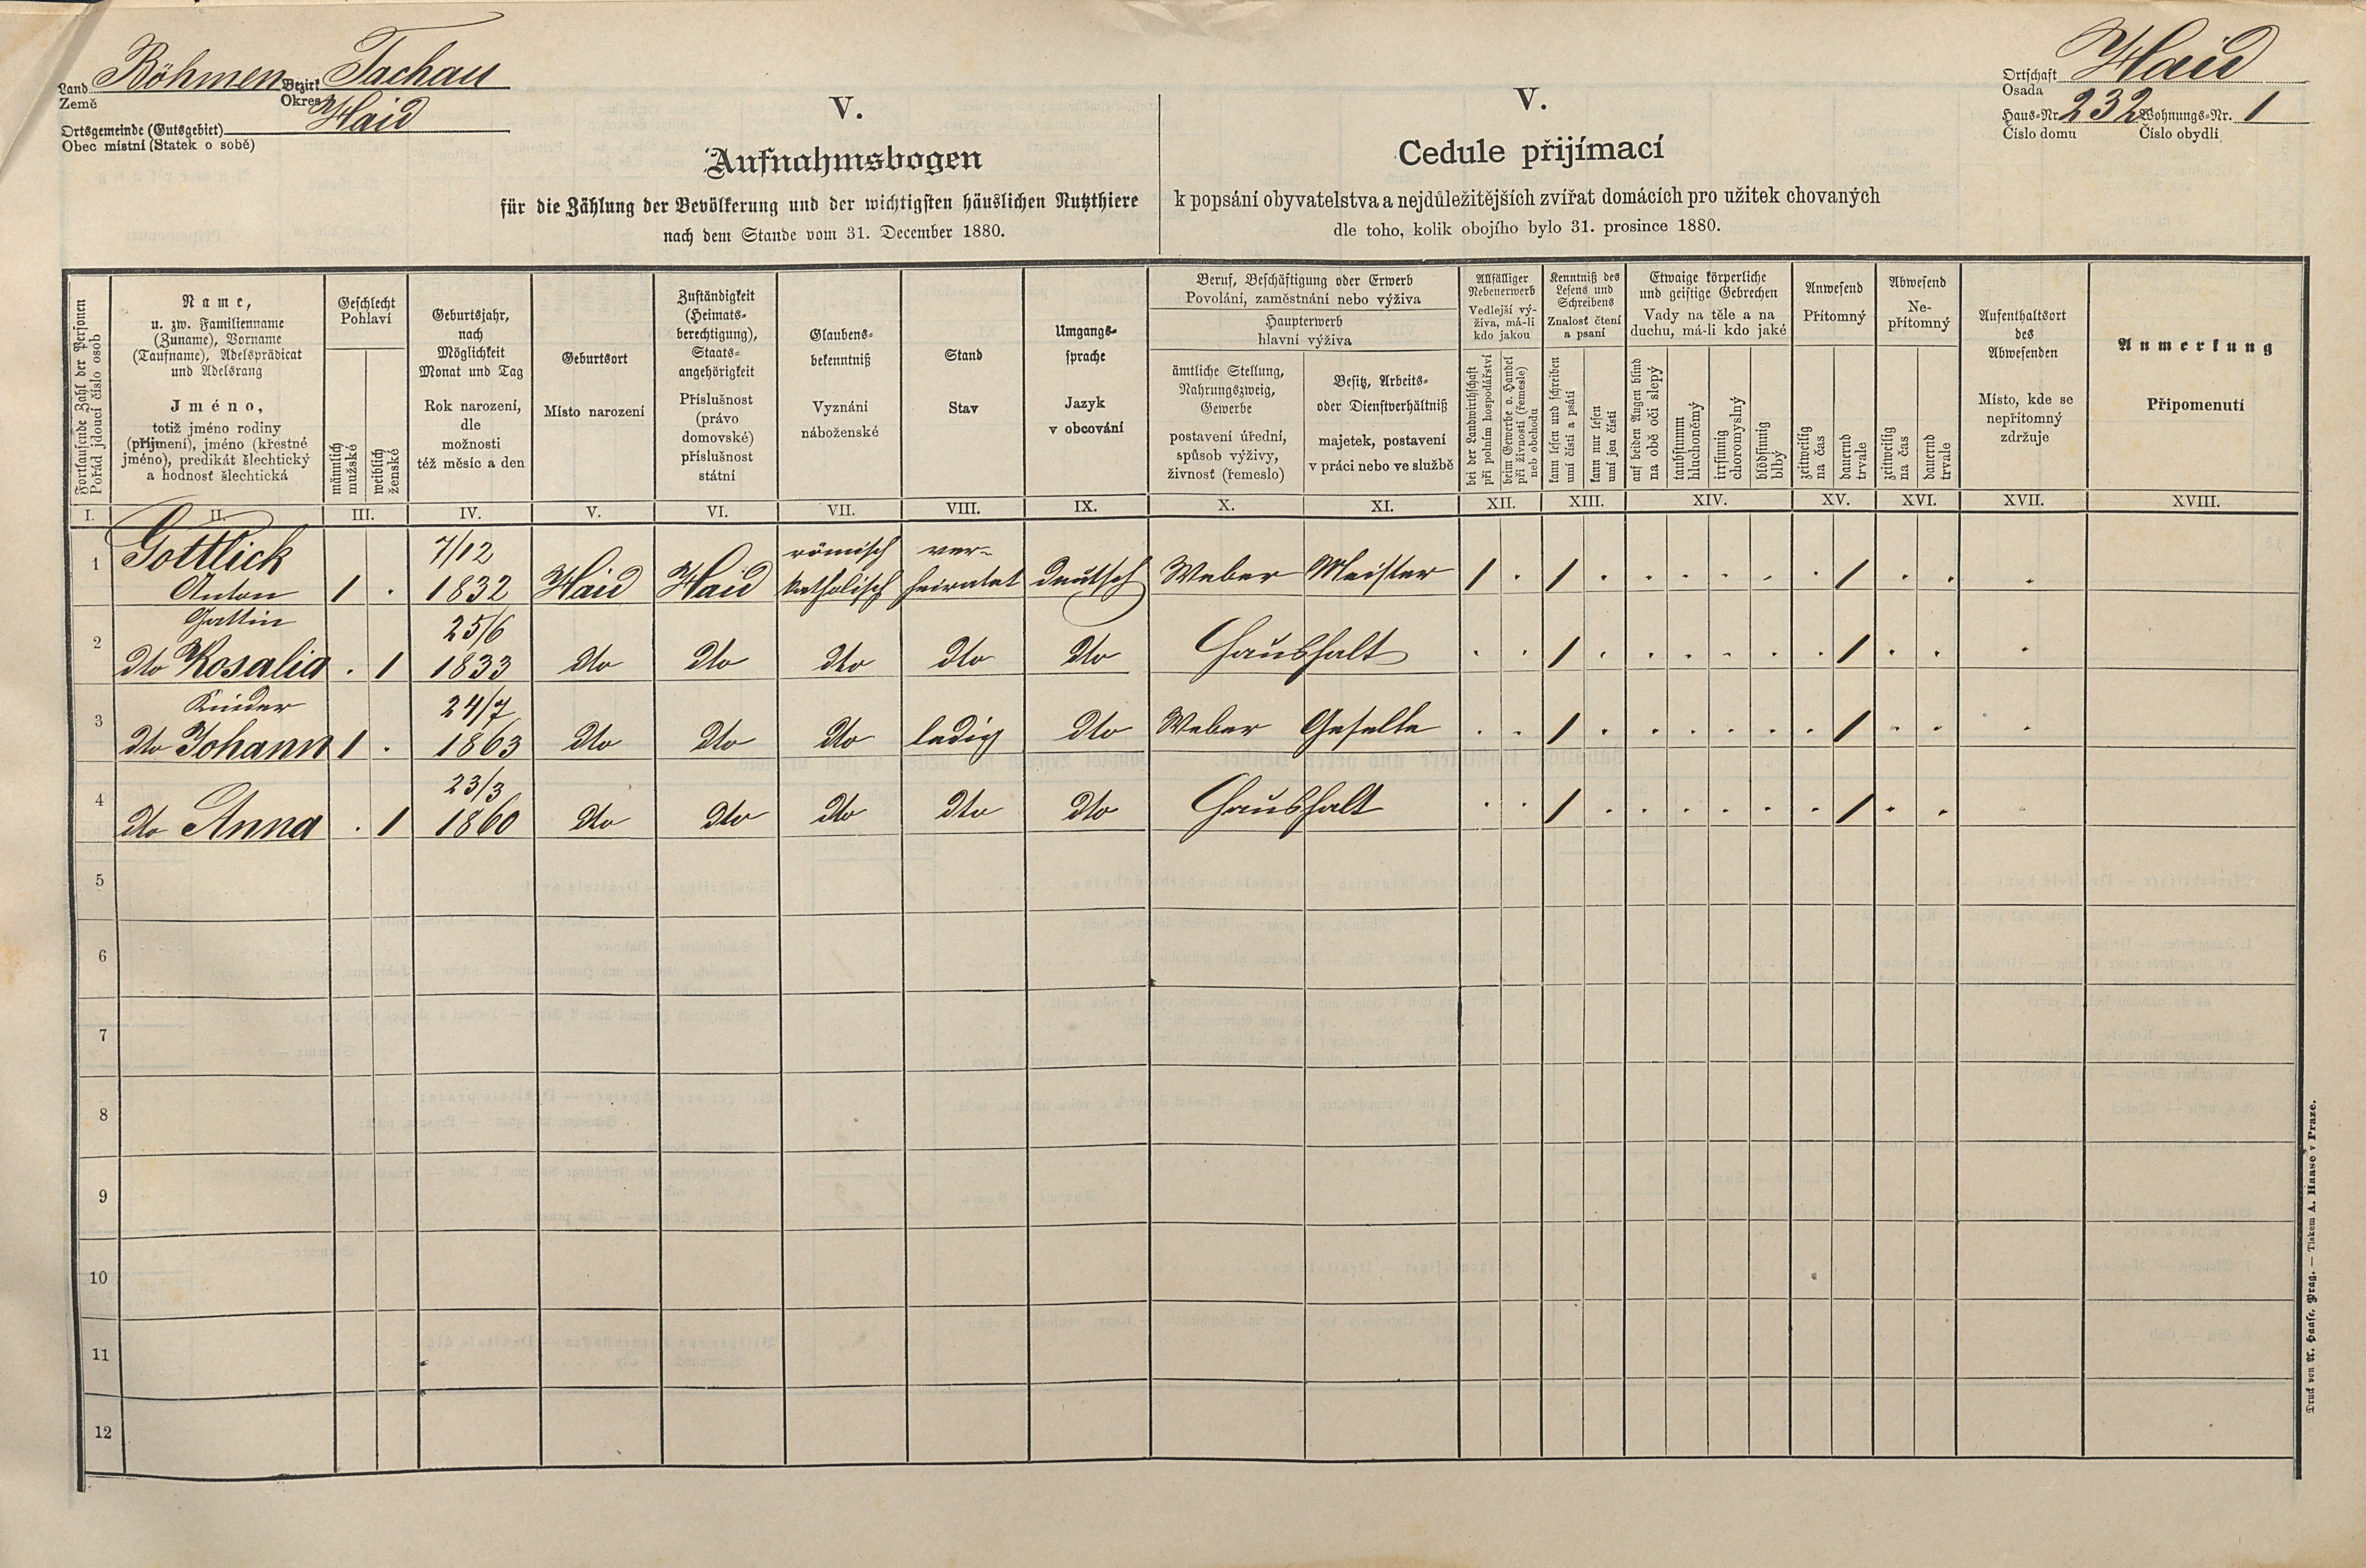 Land Böhmen Bezirk Tachau
Země Okres
Ortsgemeinde (Gutsgebiet) Haid
Obec místní (Statek o sobě)
Ortschaft Haid
Osada
Haus-Nr. 232 Wohnungs-Nr. 1
Číslo domu Číslo obydlí
V.
Aufnahmsbogen
für die Zählung der Bevölkerung und der wichtigsten häuslichen Nutzthiere
nach dem Stande vom 31. December 1880.
V.
Cedule přijímací
k popsání obyvatelstva a nejdůležitějších zvířat domácích pro užitek chovaných
dle toho, kolik obojího bylo 31. prosince 1880.
Fortlaufende Zahl der Personen
Pořád jdoucí číslo osob
Name,
u. zw. Familienname
(Zuname), Vorname
(Taufname), Adelsprädicat
und Adelsrang
Jméno,
totiž jméno rodiny
(příjmení), jméno (křestné
jméno), predikát šlechtický
a hodnosť šlechtická
Geschlecht
Pohlaví
männlich
mužské
weiblich
ženské
Geburtsjahr,
nach
Möglichkeit
Monat und Tag
Rok narození,
dle
možnosti
též měsíc a den
Geburtsort
Místo narození
Zuständigkeit
(Heimats-
berechtigung),
Staats-
angehörigkeit
Příslušnost
(právo
domovské)
příslušnost
státní
Glaubens-
bekenntniß
Vyznání
náboženské
Stand
Stav
Umgangs-
sprache
Jazyk
v obcování
Beruf, Beschäftigung oder Erwerb
Povolání, zaměstnání nebo výživa
Haupterwerb
hlavní výživa
ämtliche Stellung,
Nahrungszweig,
Gewerbe
postavení úřední,
spůsob výživy,
živnosť (řemeslo)
Besitz, Arbeits-
oder Dienstverhältniß
majetek, postavení
v práci nebo ve službě
Allfälliger
Nebenerwerb
Vedlejší vý-
živa, má-li
kdo jakou
bei der Landwirthschaft
při polním hospodářství
beim Gewerbe o. Handel
při živnosti (řemesle)
neb obchodu
Kenntniß des
Lesens und
Schreibens
Znalosť čtení
a psaní
kann lesen und schreiben
umí čísti a psáti
kann nur lesen
umí jen čísti
Etwaige körperliche
und geistige Gebrechen
Vady na těle a na
duchu, má-li kdo jaké
auf beiden Augen blind
na obě oči slepý
taubstumm
hluchoněmý
irrsinnig
choromyslný
blödsinnig
blbý
Anwesend
Přítomný
zeitweilig
na čas
dauernd
trvale
Abwesend
Ne-
přítomný
zeitweilig
na čas
dauernd
trvale
Aufenthaltsort
des
Abwesenden
Místo, kde se
nepřítomný
zdržuje
Anmerkung
Připomenutí
I. II. III. IV. V. VI. VII. VIII. IX. X. XI. XII. XIII. XIV. XV. XVI. XVII. XVIII.
Gottlick 7/12 römisch ver-
1 Anton 1 . 1832 Haid Haid katholisch heiratet deutsch Weber Meister 1 . 1 . . . . . . 1 . . .
Gattin 25/6
2 dto Rosalia . 1 1833 dto dto dto dto dto Haushalt . . 1 . . . . . . 1 . . .
Kinder 24/7
3 dto Johann 1 . 1863 dto dto dto ledig dto Weber Geselle . . 1 . . . . . . 1 . . .
23/3
4 dto Anna . 1 1860 dto dto dto dto dto Haushalt . . 1 . . . . . . 1 . . .
5
6
7
8
9
10
11
12
Druck von A. Haase, Prag. — Tiskem A. Haase v Praze.